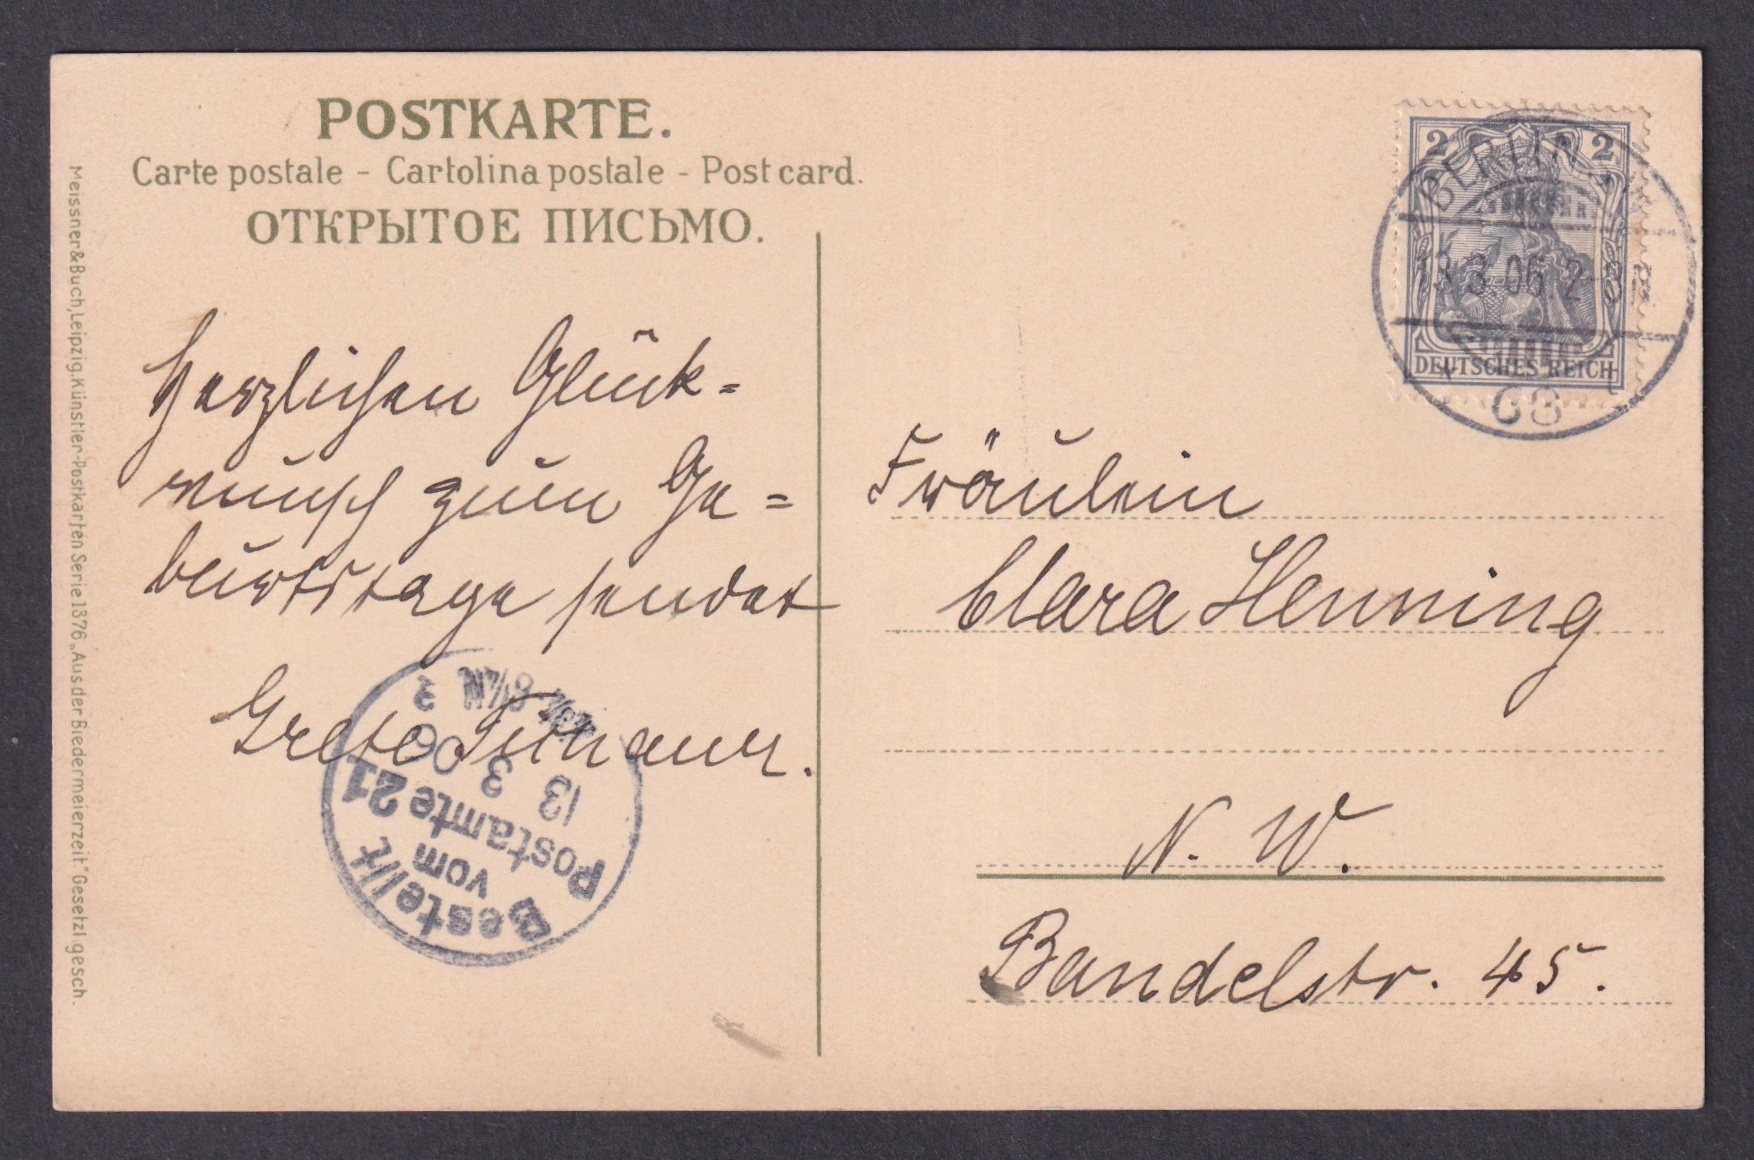 POSTKARTE.
Carte postale - Cartolina postale - Post card.
ОТКРЫТОЕ ПИСЬМО.
Meissner & Buch, Leipzig, Künstler-Postkarten Serie 1376 „Aus der Biedermeierzeit." Gesetzl. gesch.
Herzlichen Glück=
wunsch zum Ge=
burtstage sendet
Grete
Bestellt
vom
Postamte 21
13 3
2 2
BERLIN
13.3.06. 2-3
DEUTSCHES REICH
68
Fräulein
Clara Henning
N. W.
Bandelstr. 45.